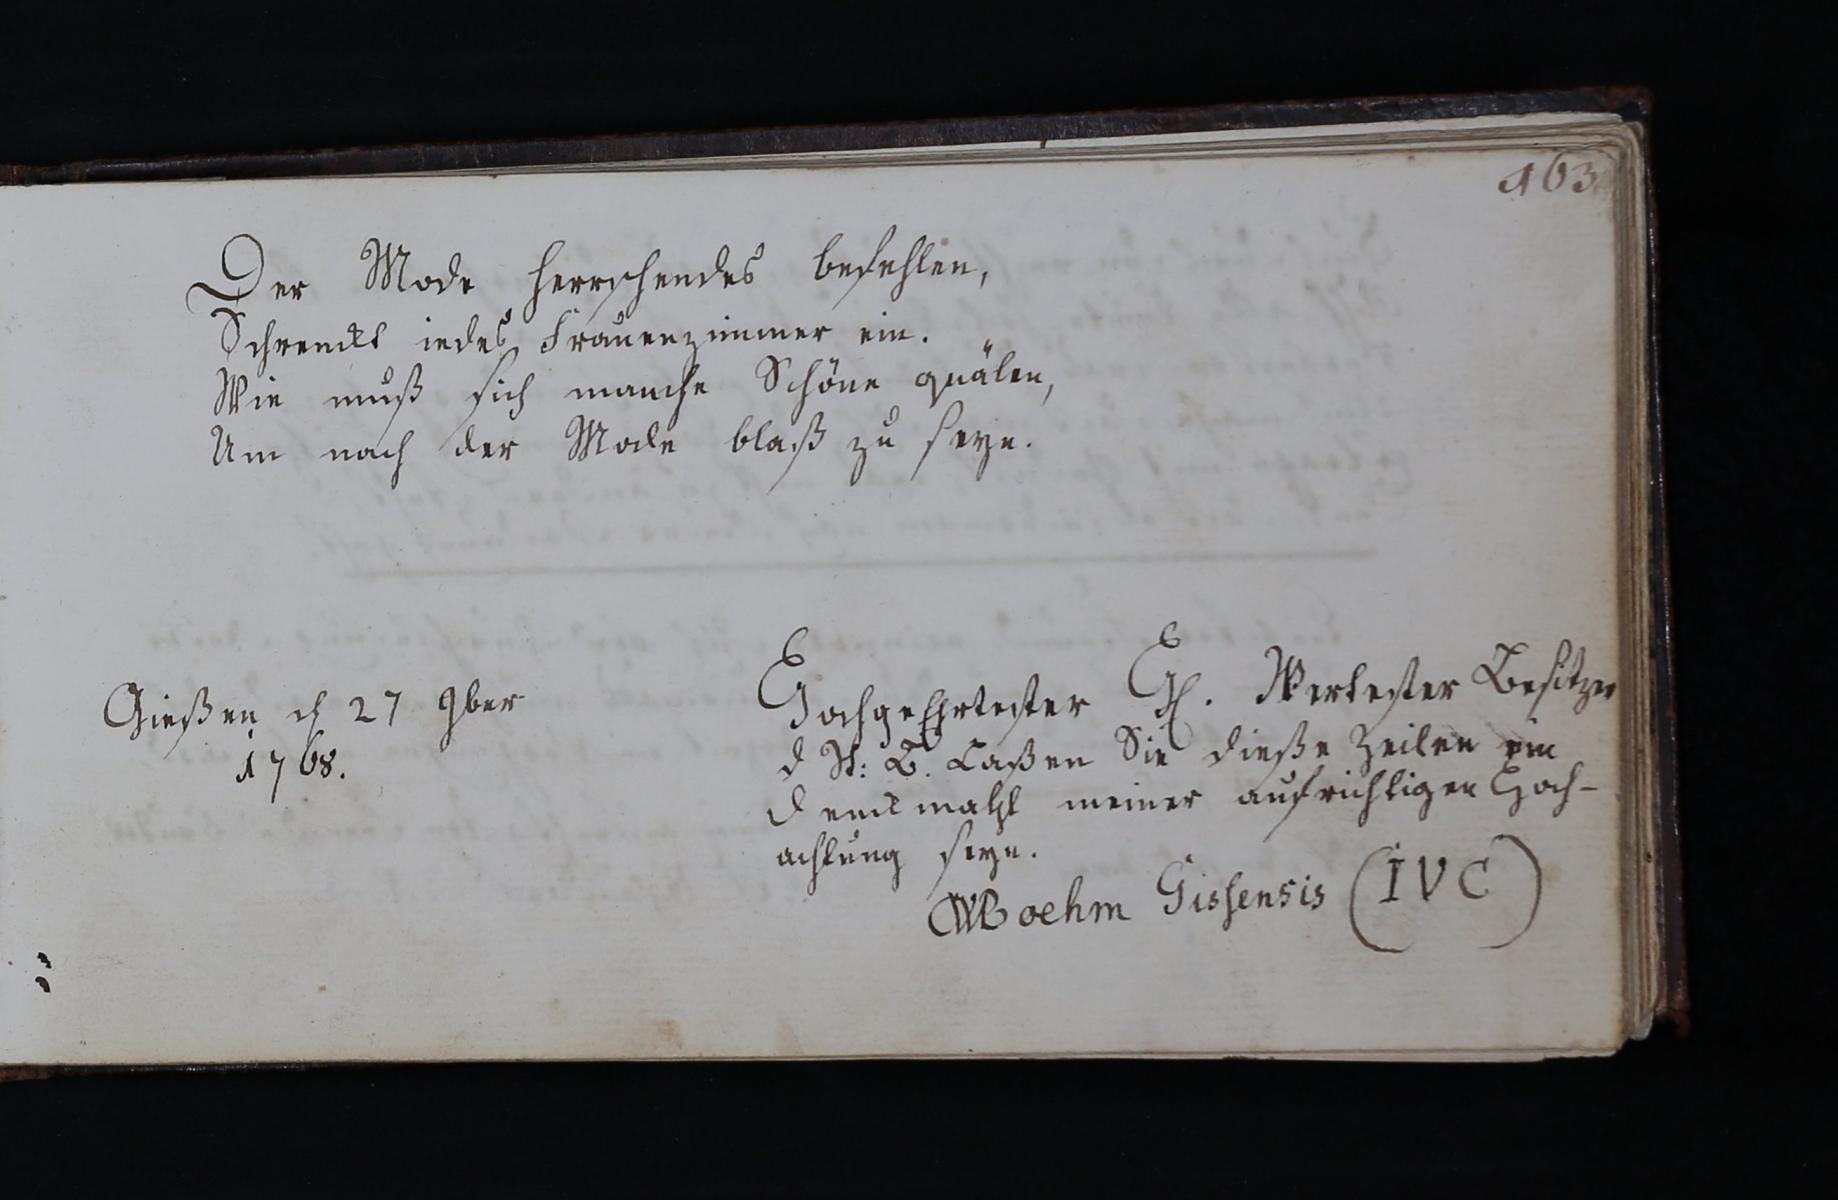 163
Der Mode herrschendes befehlen,
Schrenckt iedes Frauenzimmer ein.
Wie muß sich manche Schöne quälen,
Um nach der Mode blaß zu seyn.
Gießen d 27 9ber
1768.
HochgeEhrtester H. Wertester Besitzer
d St: B. Laßen Sie dieße Zeilen ein
Denckmahl meiner aufrichtigen Hoch-
achtung seyn.
WBoehm Gissensis (IVC)